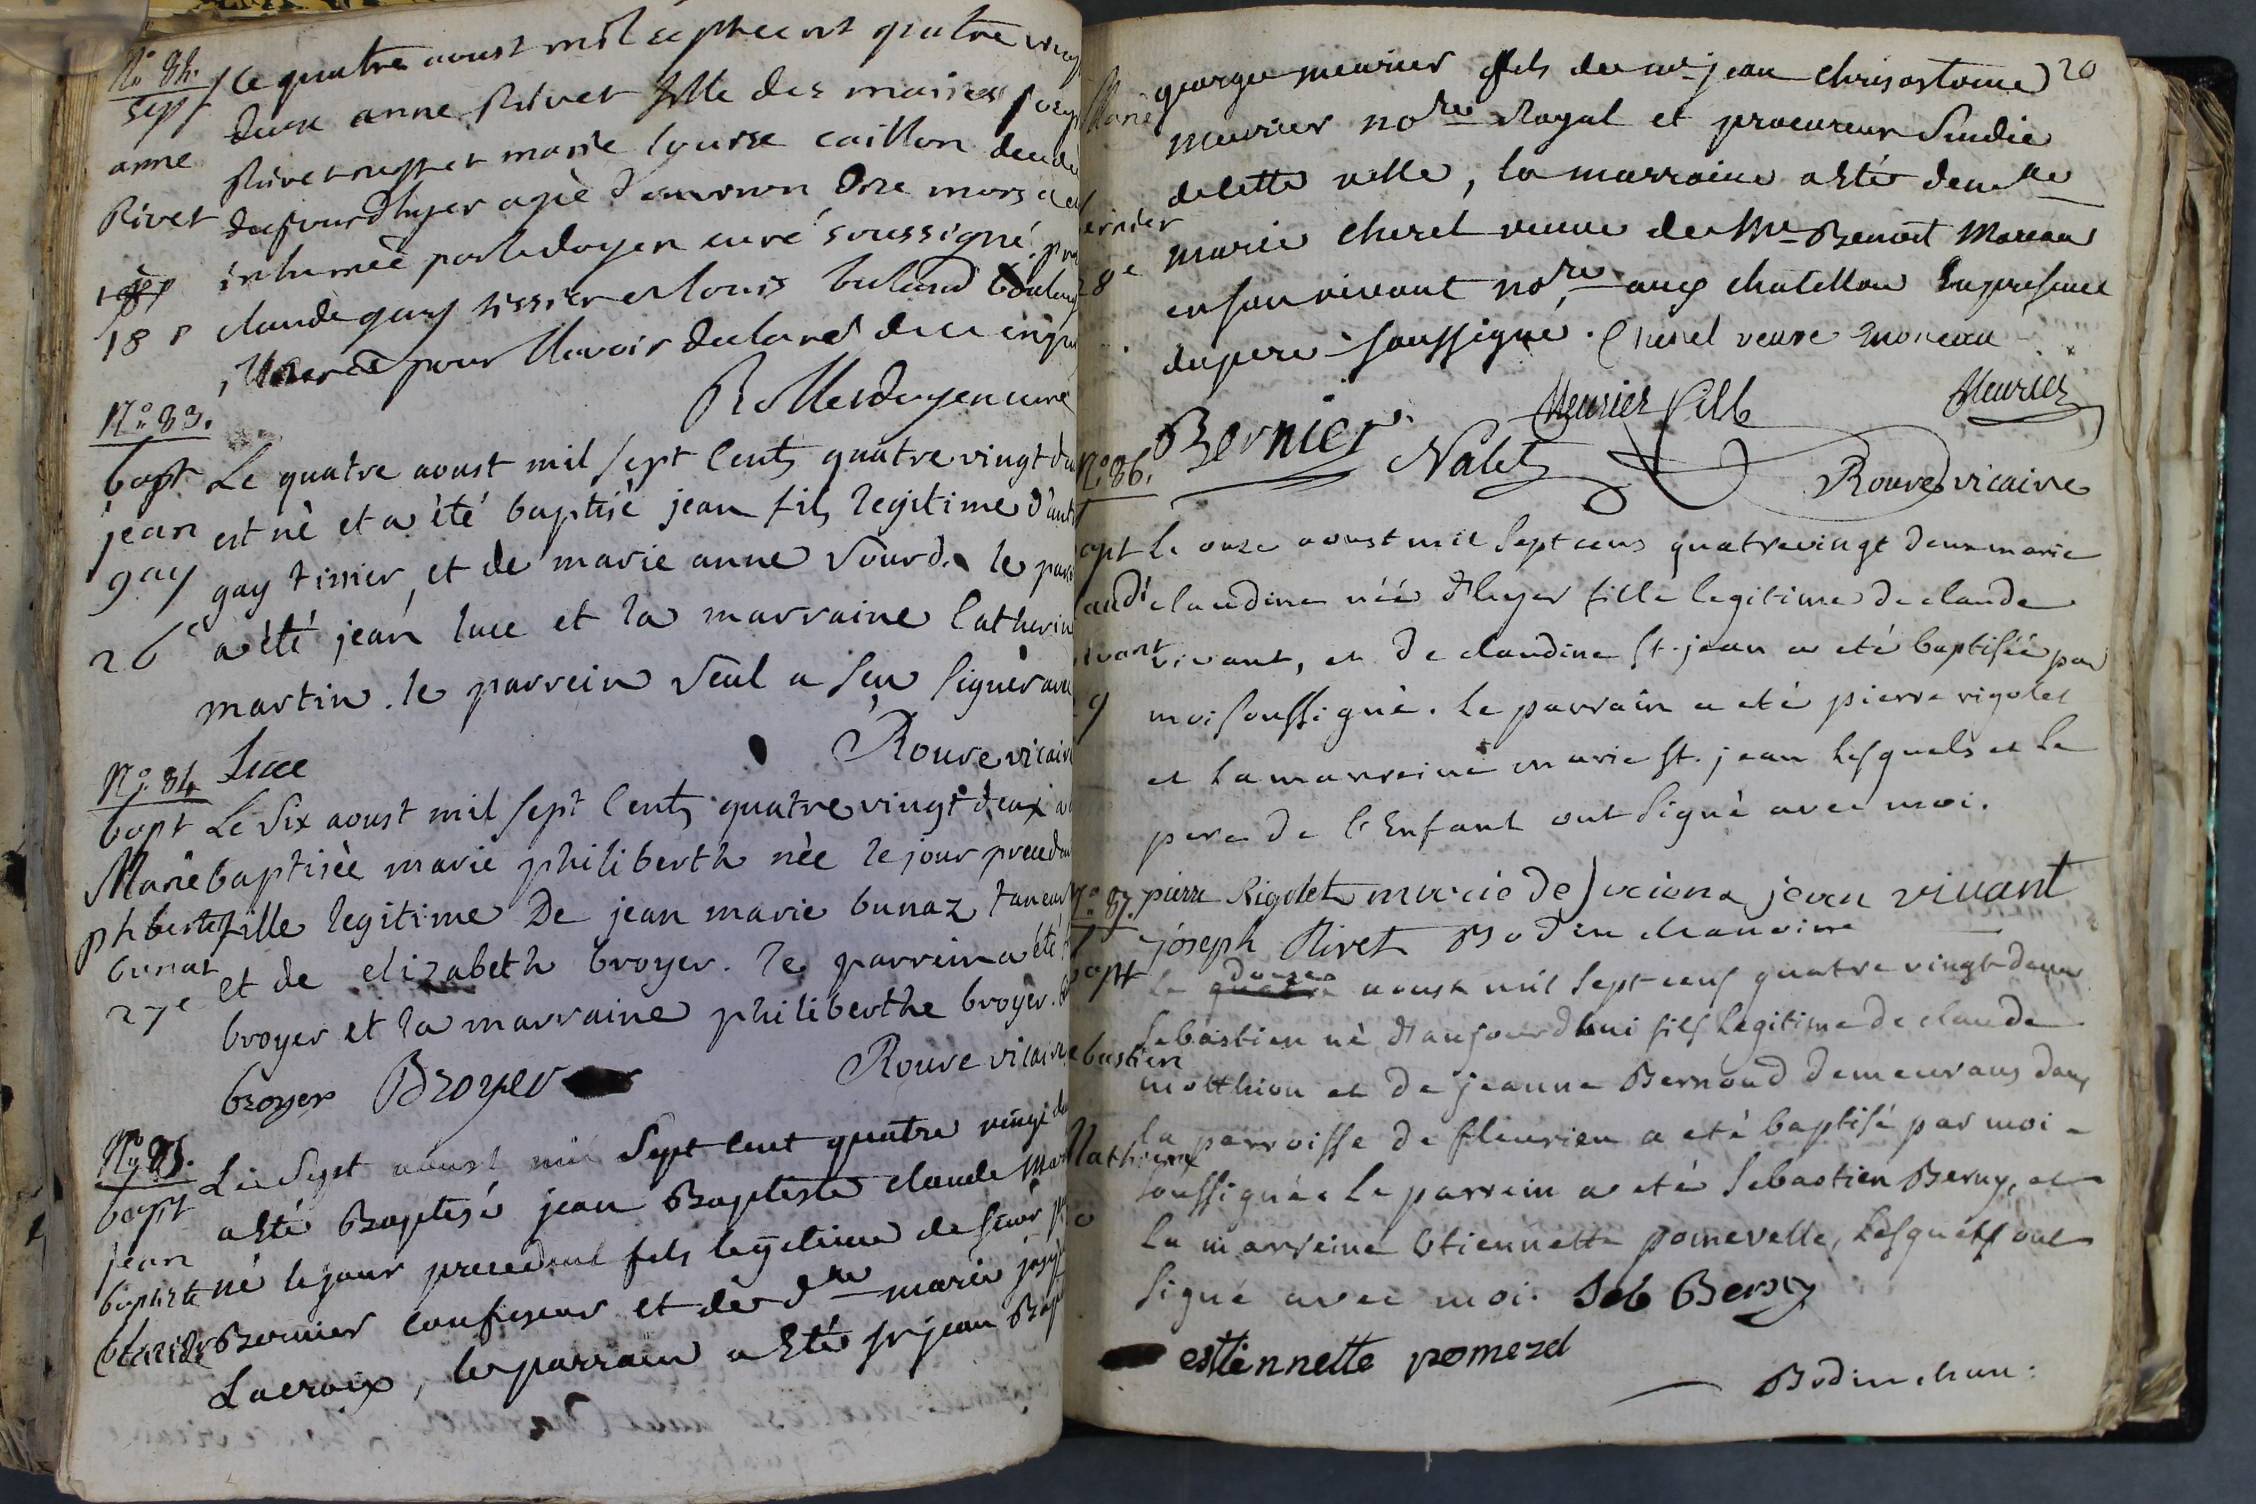 N° 82.
sep
anne
Rivet
18e
le quatre aoust mil sept cent quatre vingt
deux anne Rivet fille des mariés
Rivet et marie louise caillon
du jour d'hyer agée d'environ onze mois a été
inhumée par le doyen curé soussigné
claude gay tissier et louis
pour l'avoir declaré de ce enquis
doyen curé
N° 83.
bapt
jean
gay
26e
Le quatre aoust mil sept Cents quatre vingt du
est né et a été baptisé jean fils legitime d'ant
gay tissier, et de marie anne Sourd. le par
a été jean luce et la marraine Catherin
martin. le parrein Seul a sçu signer avec
Luce
Rouve vicaire
N° 84
bapt
Marie
phberte
bunat
27e
Le Six aoust mil sept Cents quatre vingt deux a
baptisée marie philiberth née le jour preceden
fille legitime De jean marie bunaz taneur
et de elizabeth broyer. le parrein a été
broyer et la marraine philiberthe broyer.
broyer Broyer
Rouve vicaire
N° 85.
bapt
jean
baptiste
claude
Le Sept aoust mil Sept Cent quatre vingt d
a Eté Baptisé jean Baptiste claude Mar
né le jour precedent fils legitime de sieur
Bernier confiseur et de dlle marie joseph
Lacroix, le parrain a Eté sr jean Bap
20
george meurier fils de me jean chrisostome
meurier nore Royal et procureur Sindic
de cette ville, la marraine a Eté demlle
marie cheret veuve de Me Benoit Moreau
en son vivant nore aux chatillon En presence
du pere soussigné. Cheret veuve moreau
Marie
Bernier
28e
Bernier Nalet Meurier fils Meurier
Rouve vicaire
N° 86.
bapt
claud
vivant
29
Le onze aoust mil Sept cens quatrevingt deux marie
claudine née d'hyer fille legitime de claude
vivant, et De claudine St. jean a eté baptisée par
moi soussigné. Le parrain a eté pierre rigolet
et la marreine marie St. jean lesquels et le
pere de l'Enfant ont Signé avec moi.
pierre Rigolet marie de jean vivant
joseph Rivet Bodin chanoine
N° 87.
bapt
Sebastien
Mathion
30
Le quatre douze aoust mil Sept cens quatre vingt deux
Sebastien né d'aujourdhui fils legitime de claude
motthion et De jeanne Bernoud demeurans dans
la parroisse de fleurieu a eté baptisé par moi
soussigné. Le parrein a eté Sebastien Berny, et
La marreine Etiennette pomerelle, Lesquels ont
Signé avec moi. Seb Berny
estiennette pomerel
Bodin chan: